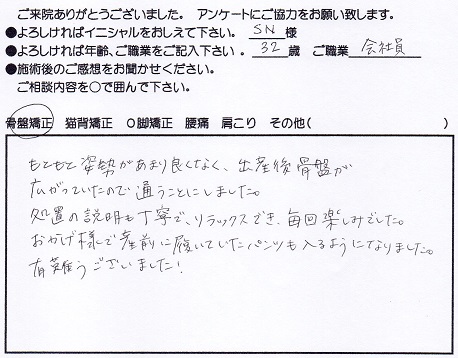 ご来院ありがとうございました。 アンケートにご協力をお願い致します。
●よろしければイニシャルをおしえて下さい。 SN 様
●よろしければ年齢、ご職業をご記入下さい 。 32 歳 ご職業 会社員
●施術後のご感想をお聞かせください。
ご相談内容を○で囲んで下さい。
骨盤矯正 猫背矯正 O脚矯正 腰痛 肩こり その他( )
もともと姿勢があまり良くなく、出産後骨盤が
広がっていたので通うことにしました。
処置の説明も丁寧で、リラックスでき、毎回楽しみでした。
おかげ様で産前に履いていたパンツも入るようになりました。
有難うございました!